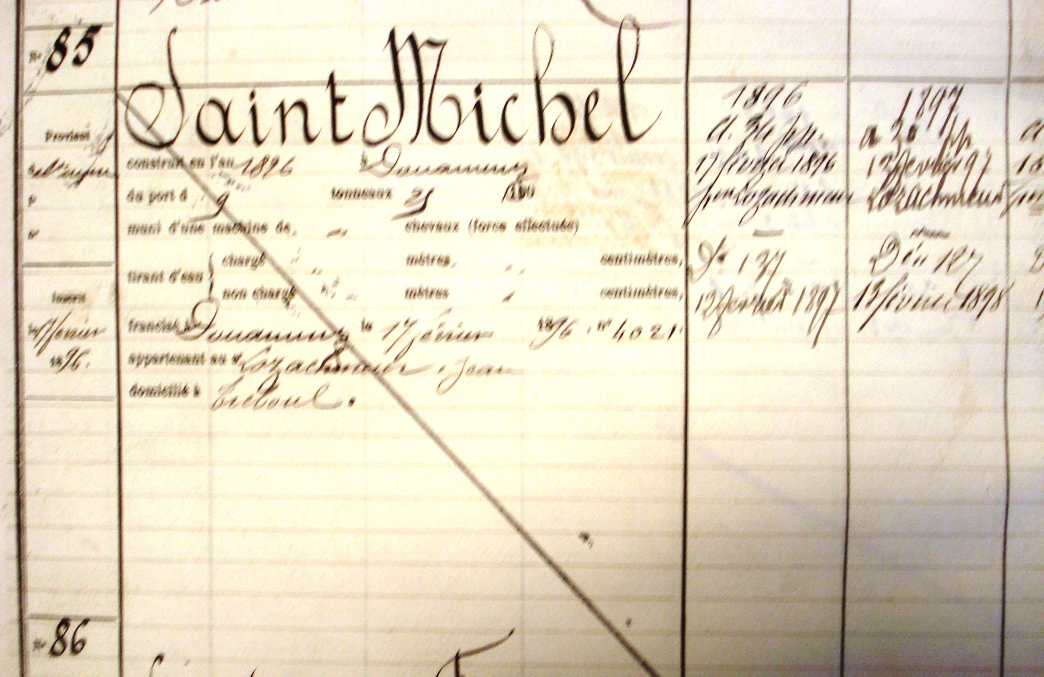 N° 85
Saint Michel
Provient
construit en l'an 1896 à Douarnenez
du port d 9 tonneaux 25 /100
muni d'une machine de " chevaux (force effectuée)
tirant d'eau
chargé " mètres, " centimètres,
non chargé " mètres " centimètres,
Inscrit
le 17 février
1896.
francisé à Douarnenez le 17 février 1896, n° 4021
appartenant au s. Lozachmeur, Jean
domicilié à Tréboul.
1896
17 février 1896
Lozachmeur
Dn 137
12 février 1897
1897
12 février 97
Lozachmeur
Dn 127
13 février 1898
N° 86